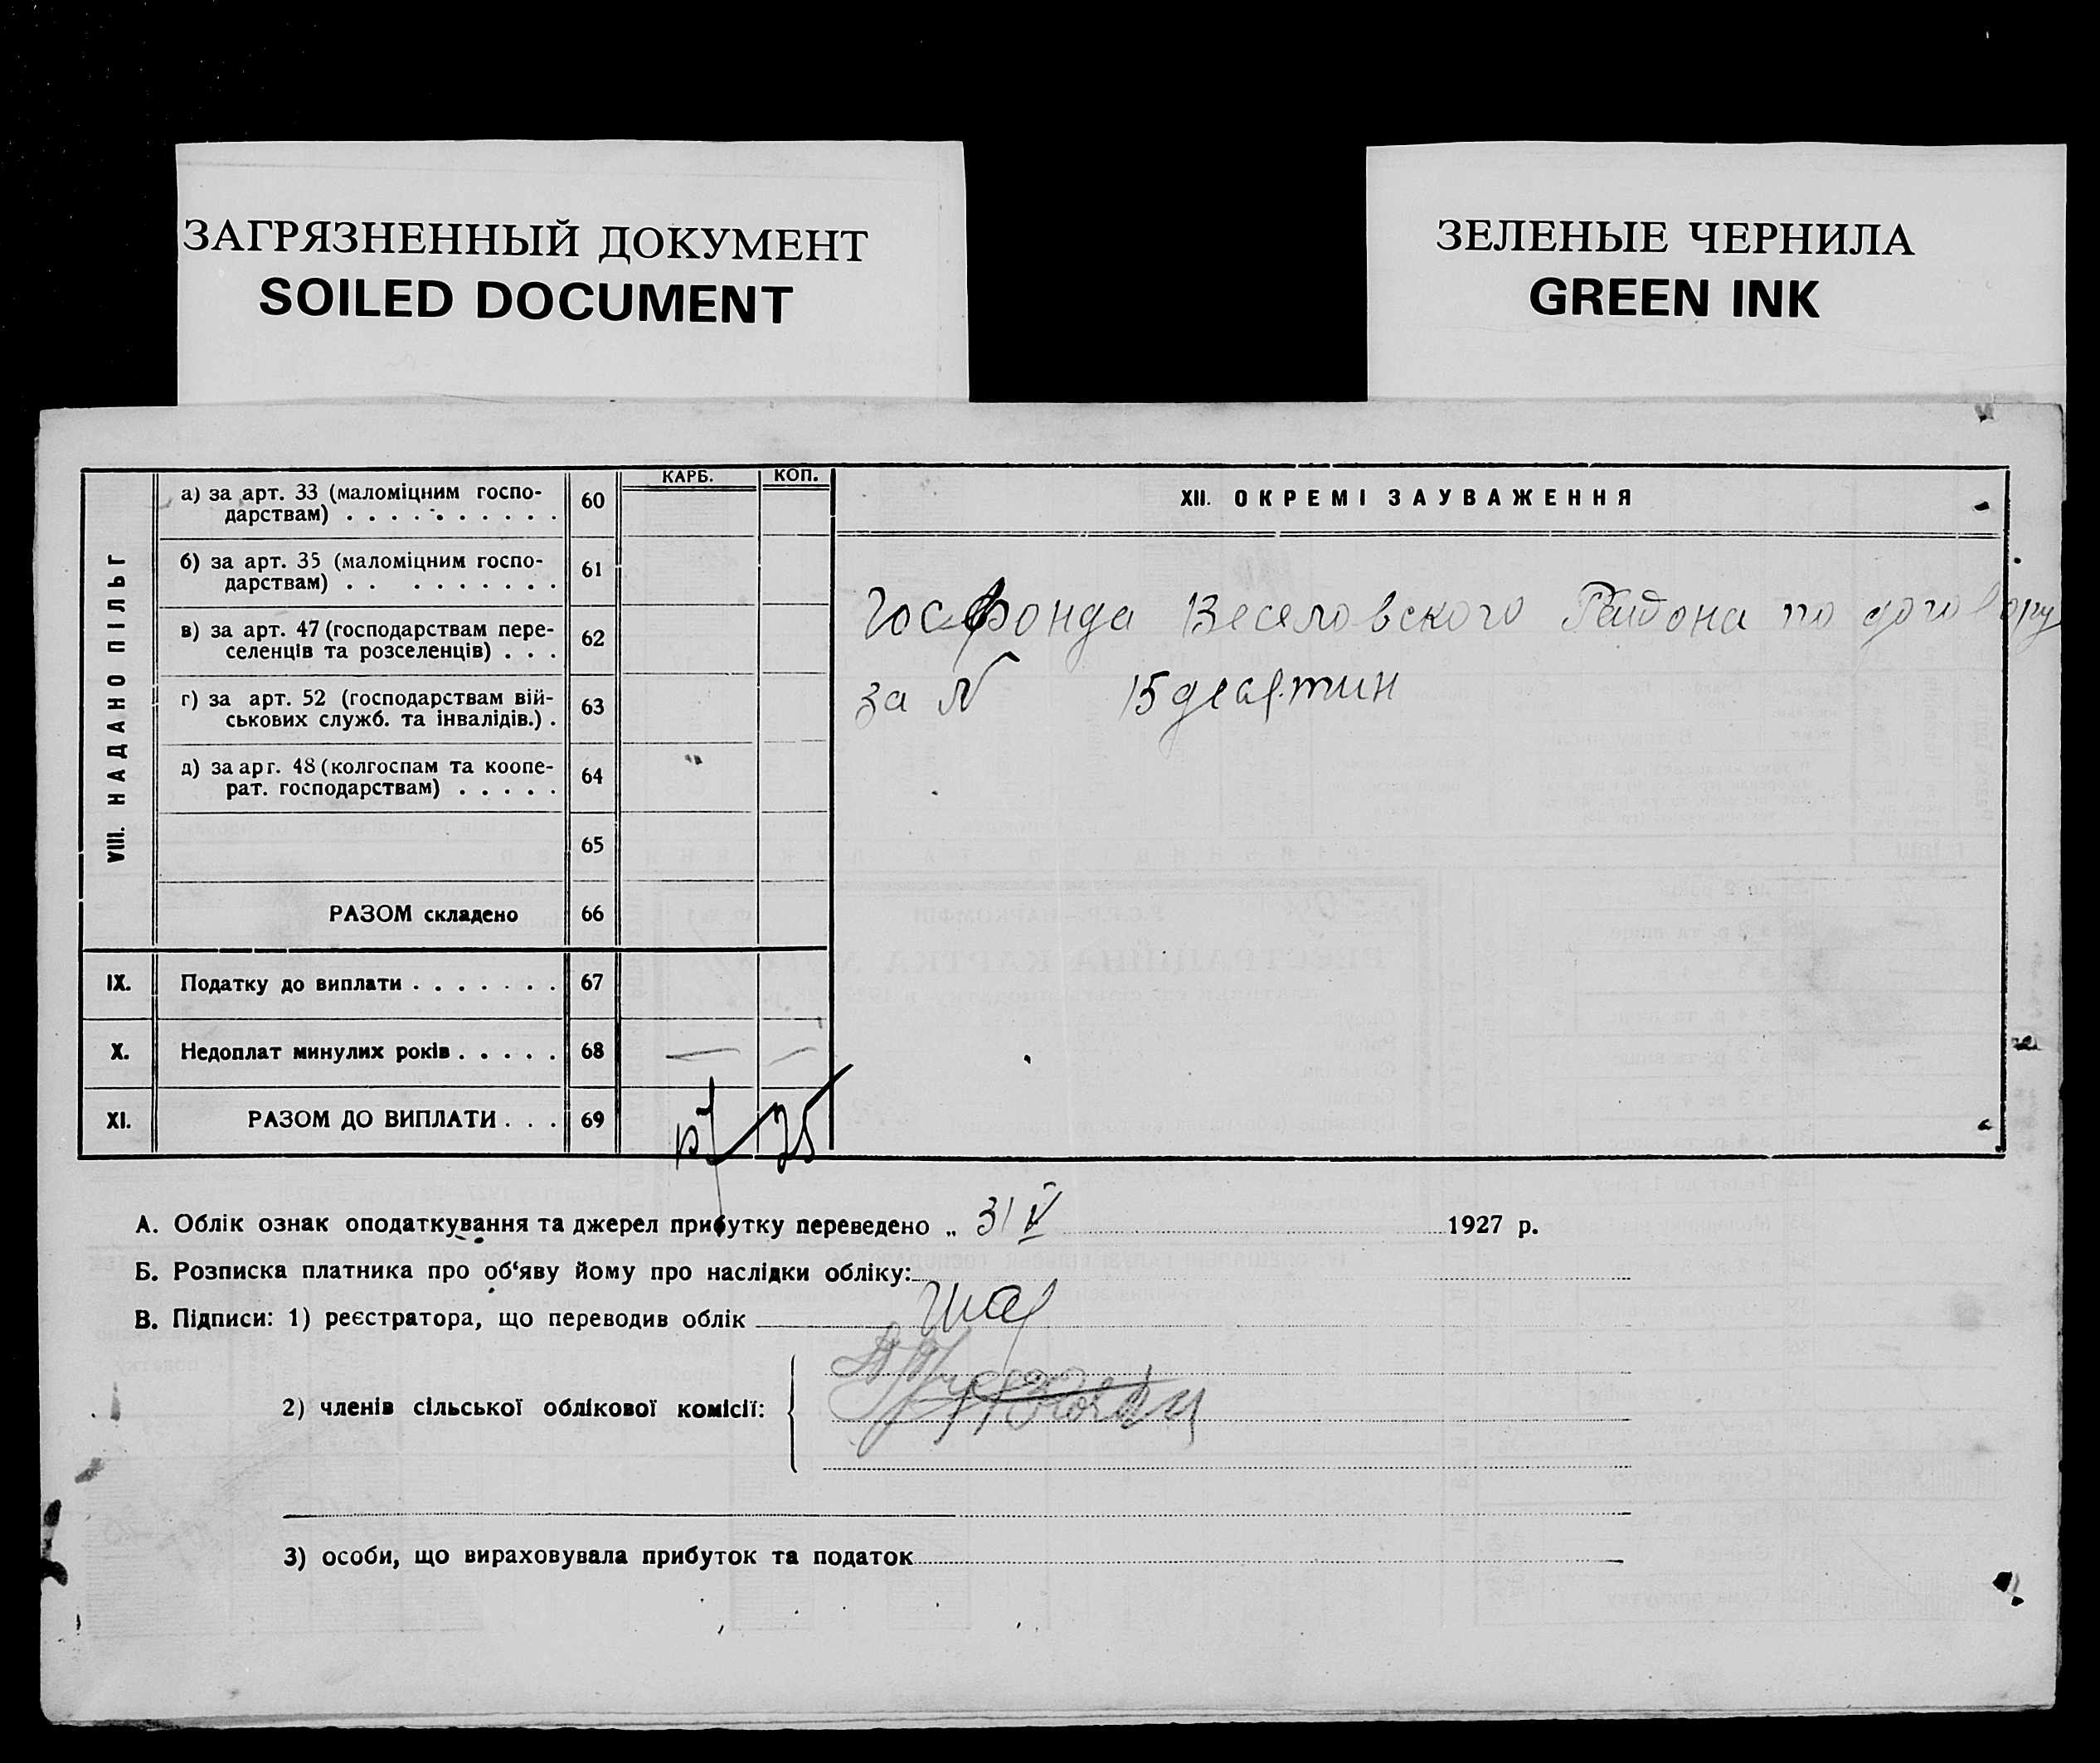 ЗАГРЯЗНЕННЫЙ ДОКУМЕНТ
SOILED DOCUMENT
ЗЕЛЕНЫЕ ЧЕРНИЛА
GREEN INK
VIII. НАДАНО ПІЛЬГ
КАРБ. КОП.
а) за арт. 33 (маломіцним госпо-
дарствам) . . . . . . . . . . 60
б) за арт. 35 (маломіцним госпо-
дарствам) . . . . . . . . . 61
в) за арт. 47 (господарствам пере-
селенців та розселенців) . . . 62
г) за арт. 52 (господарствам вій-
ськових служб. та інвалідів.) . 63
д) за арт. 48 (колгоспам та коопе-
рат. господарствам) . . . . . 64
65
РАЗОМ складено 66
IX. Податку до виплати . . . . . . . 67
X. Недоплат минулих років . . . . . 68 — —
XI. РАЗОМ ДО ВИПЛАТИ . . . 69
XII. ОКРЕМІ ЗАУВАЖЕННЯ
Госфонда Веселовского Района по договору
за N 15 десятин
А. Облік ознак оподаткування та джерел прибутку переведено „ 31 V 1927 р.
Б. Розписка платника про об‘яву йому про наслідки обліку:
В. Підписи: 1) реєстратора, що переводив облік
2) членів сільської облікової комісії:
3) особи, що вираховувала прибуток та податок